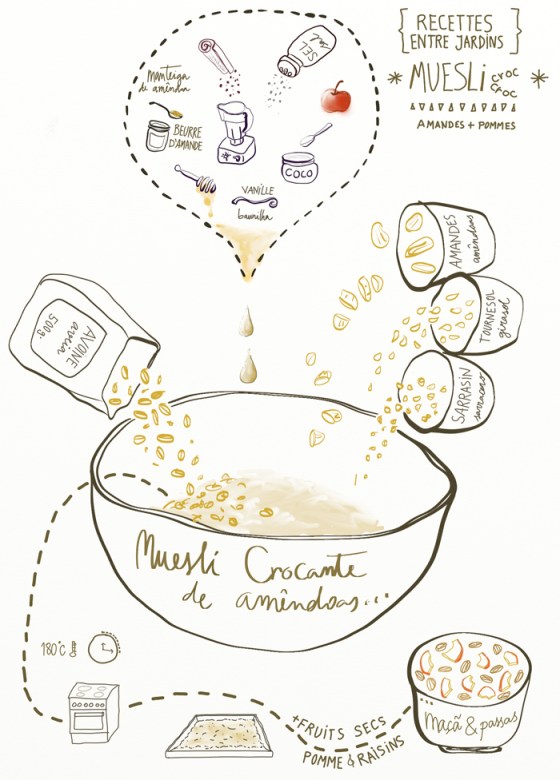 RECETTES
ENTRE JARDINS
* MUESLI CROC CROC *
AMANDES + POMMES
SEL
sal
manteiga
de amêndoa
BEURRE
D'AMANDE
COCO
VANILLE
baunilha
AMANDES
amêndoas
TOURNESOL
girasol
SARRASIN
sarraceno
AVOINE
aveia
500g.
Muesli Crocante
de amêndoas...
180°C
+FRUITS SECS
POMME & RAISINS
Maçã & passas